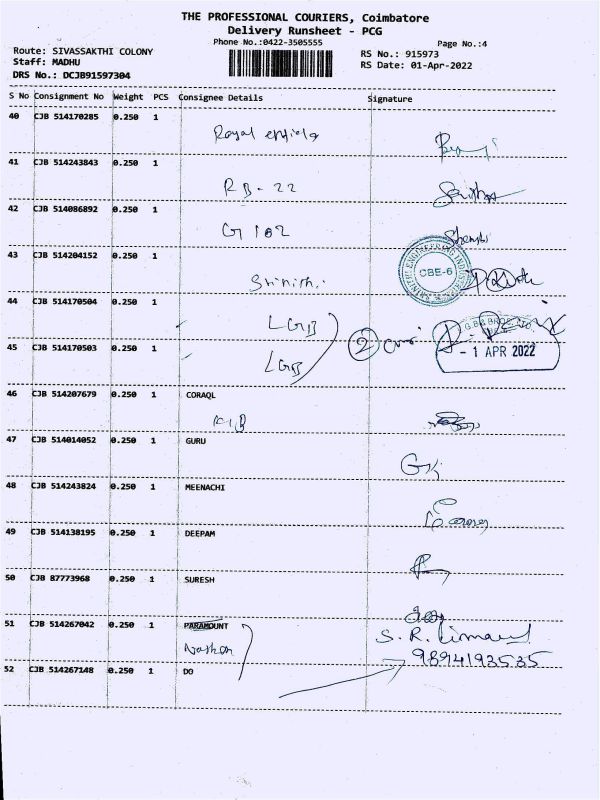 THE PROFESSIONAL COURIERS, Coimbatore
Delivery Runsheet - PCG
Phone No.:0422-3505555
Page No.:4
Route: SIVASSAKTHI COLONY
RS No.: 915973
Staff: MADHU
RS Date: 01-Apr-2022
DRS No.: DCJB91597304
S No Consignment No Weight PCS Consignee Details Signature
40 CJB 514170285 0.250 1
Royal enfield
41 CJB 514243843 0.250 1
RB-22
42 CJB 514086892 0.250 1
G 102
43 CJB 514204152 0.250 1
CBE-6
44 CJB 514170504 0.250 1
LGB
2
45 CJB 514170503 0.250 1
LGB
- 1 APR 2022
46 CJB 514207679 0.250 1 CORAQL
47 CJB 514014052 0.250 1 GURU
GK
48 CJB 514243824 0.250 1 MEENACHI
49 CJB 514138195 0.250 1 DEEPAM
50 CJB 87773968 0.250 1 SURESH
51 CJB 514267042 0.250 1 PARAMOUNT
S. R.
9894193535
52 CJB 514267148 0.250 1 DO